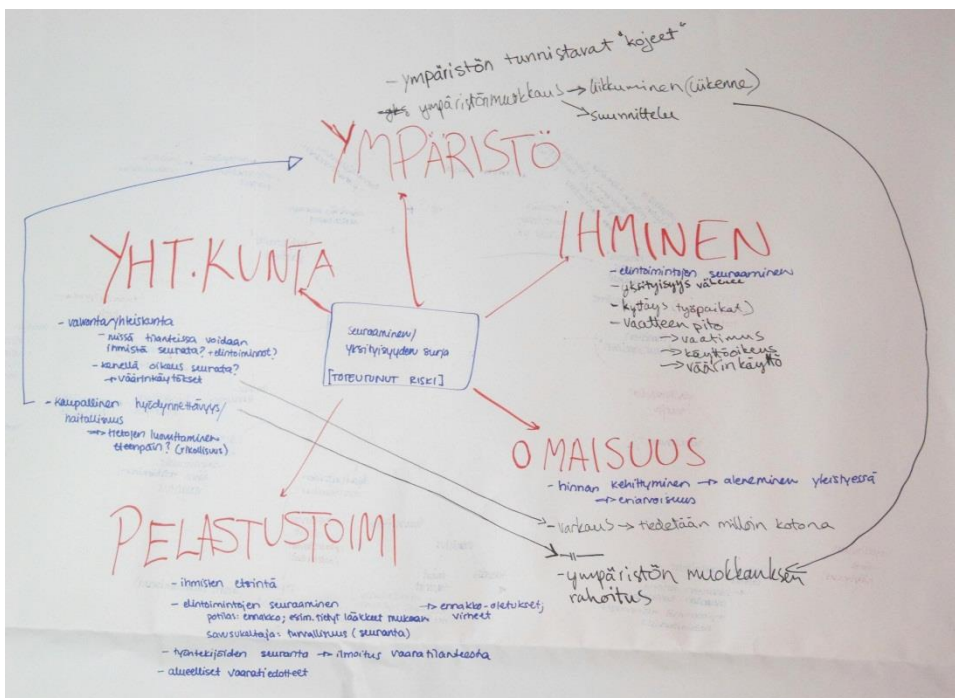 - ympäristön tunnistavat "kojeet"
ympäristönmuokkaus → liikkuminen (liikenne)
→ suunnittelu
YMPÄRISTÖ
IHMINEN
- elintoimintojen seuraaminen
- yksityisyys vähenee
- kyttäys työpaikat)
- vaatteen pito
→ vaatimus
→ käyttöoikeus
→ väärinkäyttö
YHT.KUNTA
- valvontayhteiskunta
- missä tilanteissa voidaan
ihmistä seurata? + elintoiminnot?
- kenellä oikeus seurata?
→ väärinkäytökset
- kaupallinen hyödynnettävyys/
haitallisuus
→ tietojen luovuttaminen
eteenpäin? (rikollisuus)
Seuraaminen/
yksityisyyden suoja
[TOTEUTUNUT RISKI]
OMAISUUS
- hinnan kehittyminen → aleneminen yleistyessä
→ eriarvoisuus
- varkaus → tiedetään milloin kotona
—||—
- ympäristön muokkauksen
rahoitus
PELASTUSTOIMI
- ihmisten etsintä
- elintoimintojen seuraaminen → ennakko-oletukset;
potilas: ennakko; esim. tietyt lääkkeet mukaan virheet
savusukeltaja: turvallisuus (seuranta)
- työntekijöiden seuranta → ilmoitus vaaratilanteesta
- alueelliset vaaratiedotteet